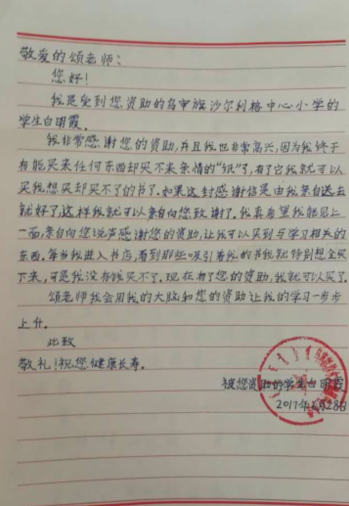 敬爱的颂老师：
您好！
我是受到您资助的乌审旗沙尔利格中心小学的
学生白明霞。
我非常感谢您的资助，并且我也非常高兴，因为我终于
有能买来任何东西却买不来亲情的“纸”了，有了它我就可以
买我想买却买不了的书了。如果这封感谢信是由我亲自送去
就好了，这样我就可以亲自向您致谢了。我真希望我能见上
一面，亲自向您说声感谢您的资助，让我可以买到与学习相关的
东西。每当我进入书店，看到那些吸引着我的书我就特别想全买
下来，可是我没有钱买不了。现在有了您的资助，我就可以买了。
颂老师我会用我的大脑和您的资助让我的学习一步步
上升。
此致
敬礼！祝您健康长寿。
被您资助的学生白明霞
2017年 月28日